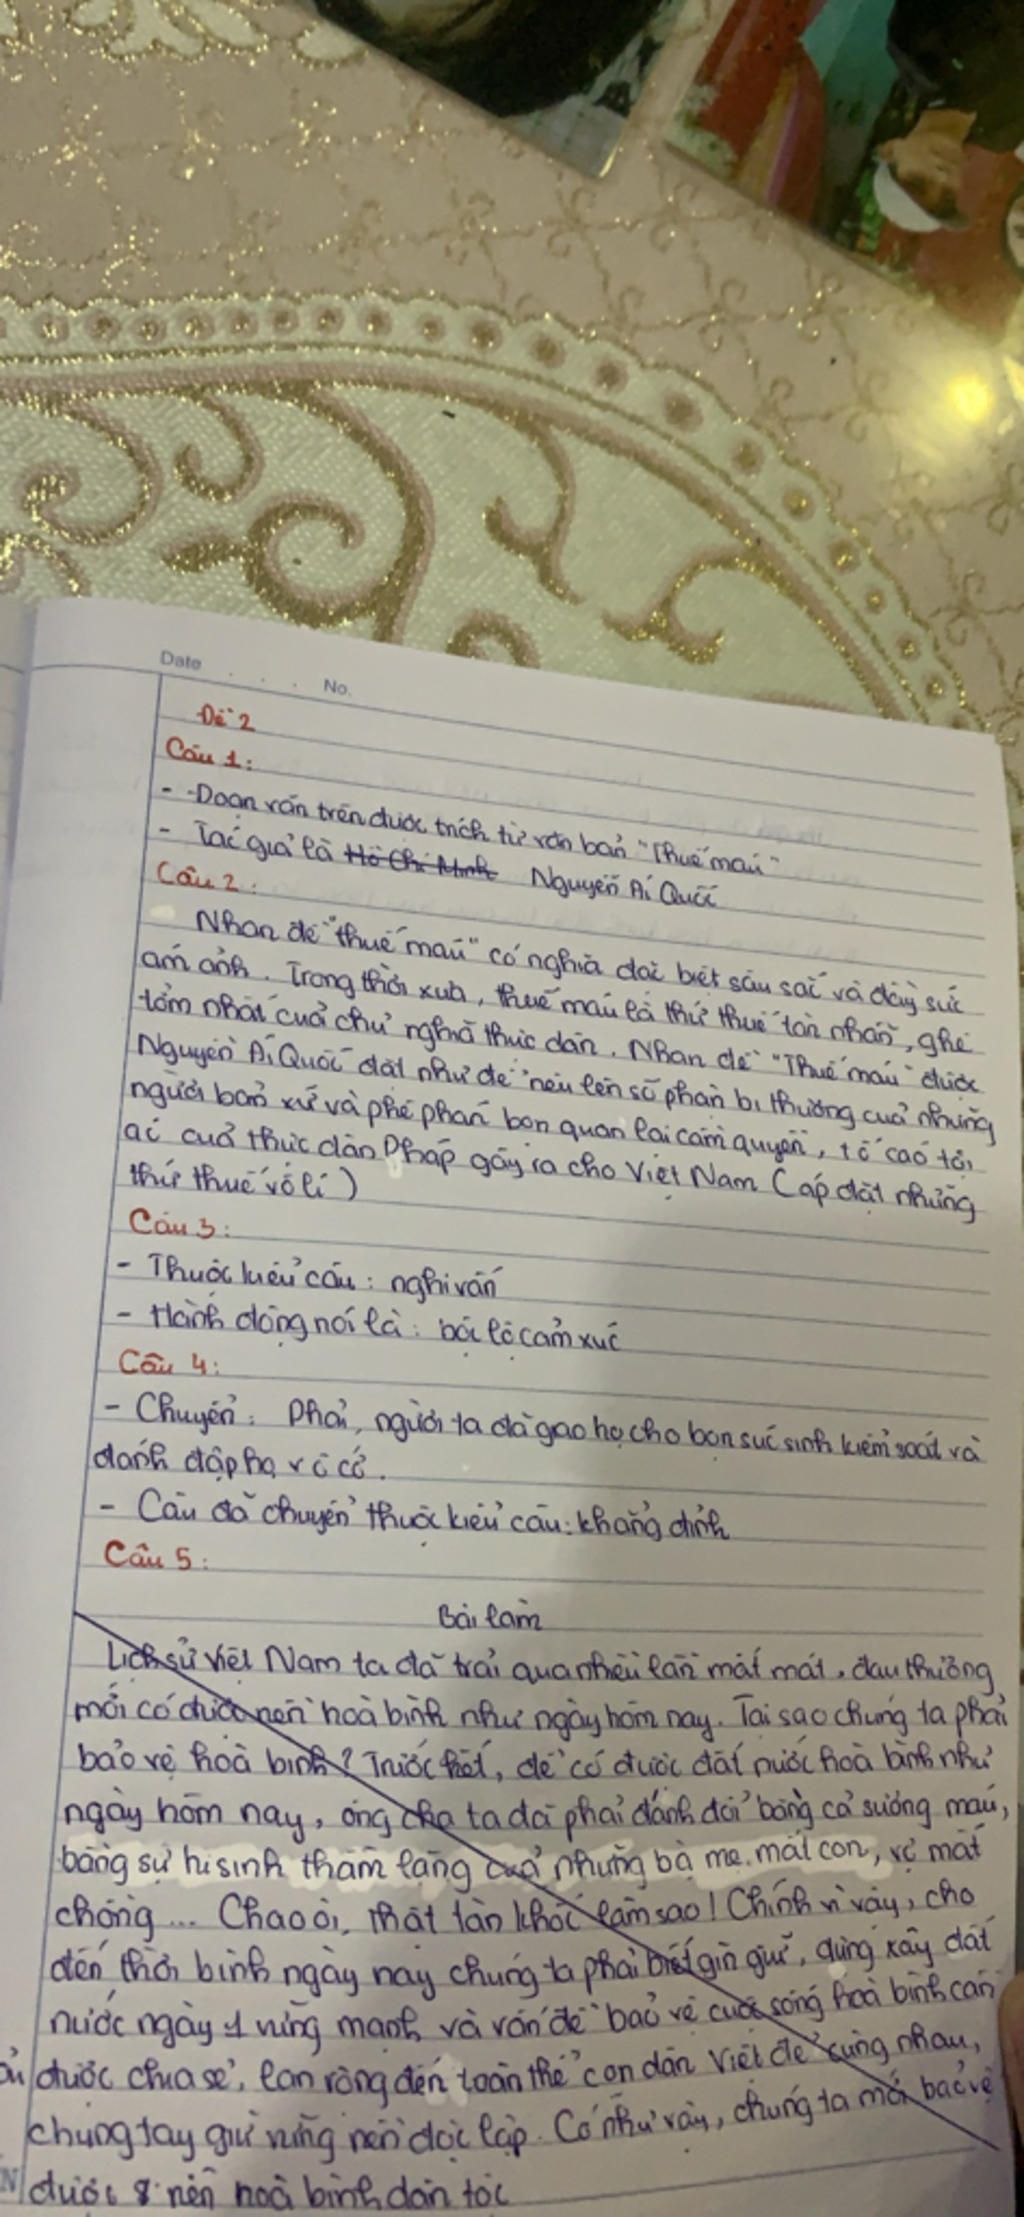 Date . . . No.
Đề 2
Câu 1:
- Đoạn văn trên được trích từ văn bản "Thuế máu"
- Tác giả là Hồ Chí Minh Nguyễn Ái Quốc
Câu 2:
Nhan đề "thuế máu" có nghĩa đặc biệt sâu sắc và đầy sức
ám ảnh. Trong thời xưa, thuế máu là thứ thuế tàn nhẫn, ghê
tởm nhất của chủ nghĩa thực dân. Nhan đề "Thuế máu" được
Nguyễn Ái Quốc đặt như để nêu lên số phận bi thương của những
người bản xứ và phê phán bọn quan lại cầm quyền, tố cáo tội
ác của thực dân Pháp gây ra cho Việt Nam (áp đặt những
thứ thuế vô lí)
Câu 3:
- Thuộc kiểu câu: nghi vấn
- Hành động nói là: bộc lộ cảm xúc
Câu 4:
- Chuyển: Phải, người ta đã giao họ cho bọn súc sinh kiểm soát và
đánh đập họ vô cớ.
- Câu đã chuyển thuộc kiểu câu: khẳng định
Câu 5:
Bài làm
Lịch sử Việt Nam ta đã trải qua nhiều lần mất mát, đau thương
mới có được nền hoà bình như ngày hôm nay. Tại sao chúng ta phải
bảo vệ hoà bình? Trước hết, để có được đất nước hoà bình như
ngày hôm nay, ông cha ta đã phải đánh đổi bằng cả sương máu,
bằng sự hi sinh thầm lặng của những bà mẹ mất con, vợ mất
chồng ... Chao ôi, thật tàn khốc làm sao! Chính vì vậy, cho
đến thời bình ngày nay chúng ta phải biết gìn giữ, dựng xây đất
nước ngày 1 vững mạnh và vấn đề bảo vệ cuộc sống hoà bình cần
được chia sẻ, lan rộng đến toàn thể con dân Việt để cùng nhau,
chung tay giữ vững nền độc lập. Có như vậy, chúng ta mới bảo vệ
được nền hoà bình dân tộc